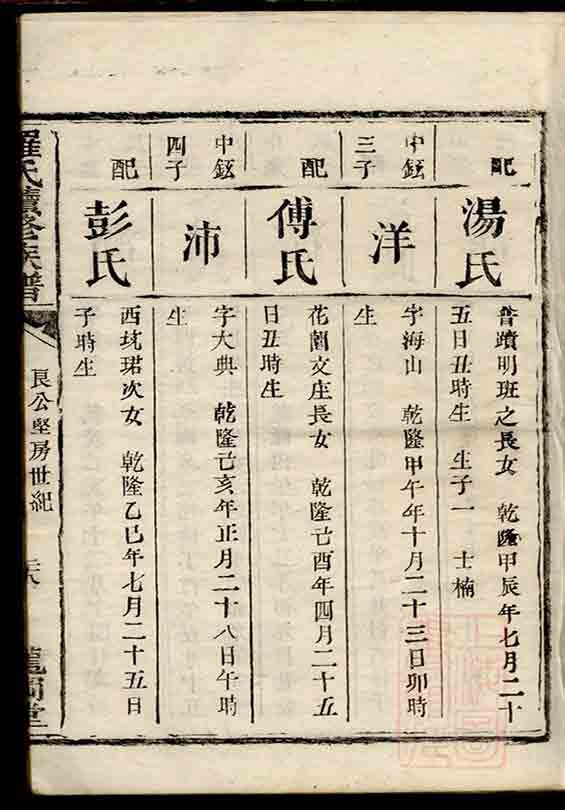 配
湯氏
普蹟明班之長女　乾隆甲辰年七月二十
五日丑時生　生子一　士楠
中鉉
三子
洋
字海山　乾隆甲午年十月二十三日卯時
生
配
傅氏
花園文庄長女　乾隆己酉年四月二十五
日丑時生
中鉉
四子
沛
字大典　乾隆己亥年正月二十八日午時
生
配
彭氏
西坑珺次女　乾隆乙巳年七月二十五日
子時生
羅氏續修族譜
良公堅房世紀